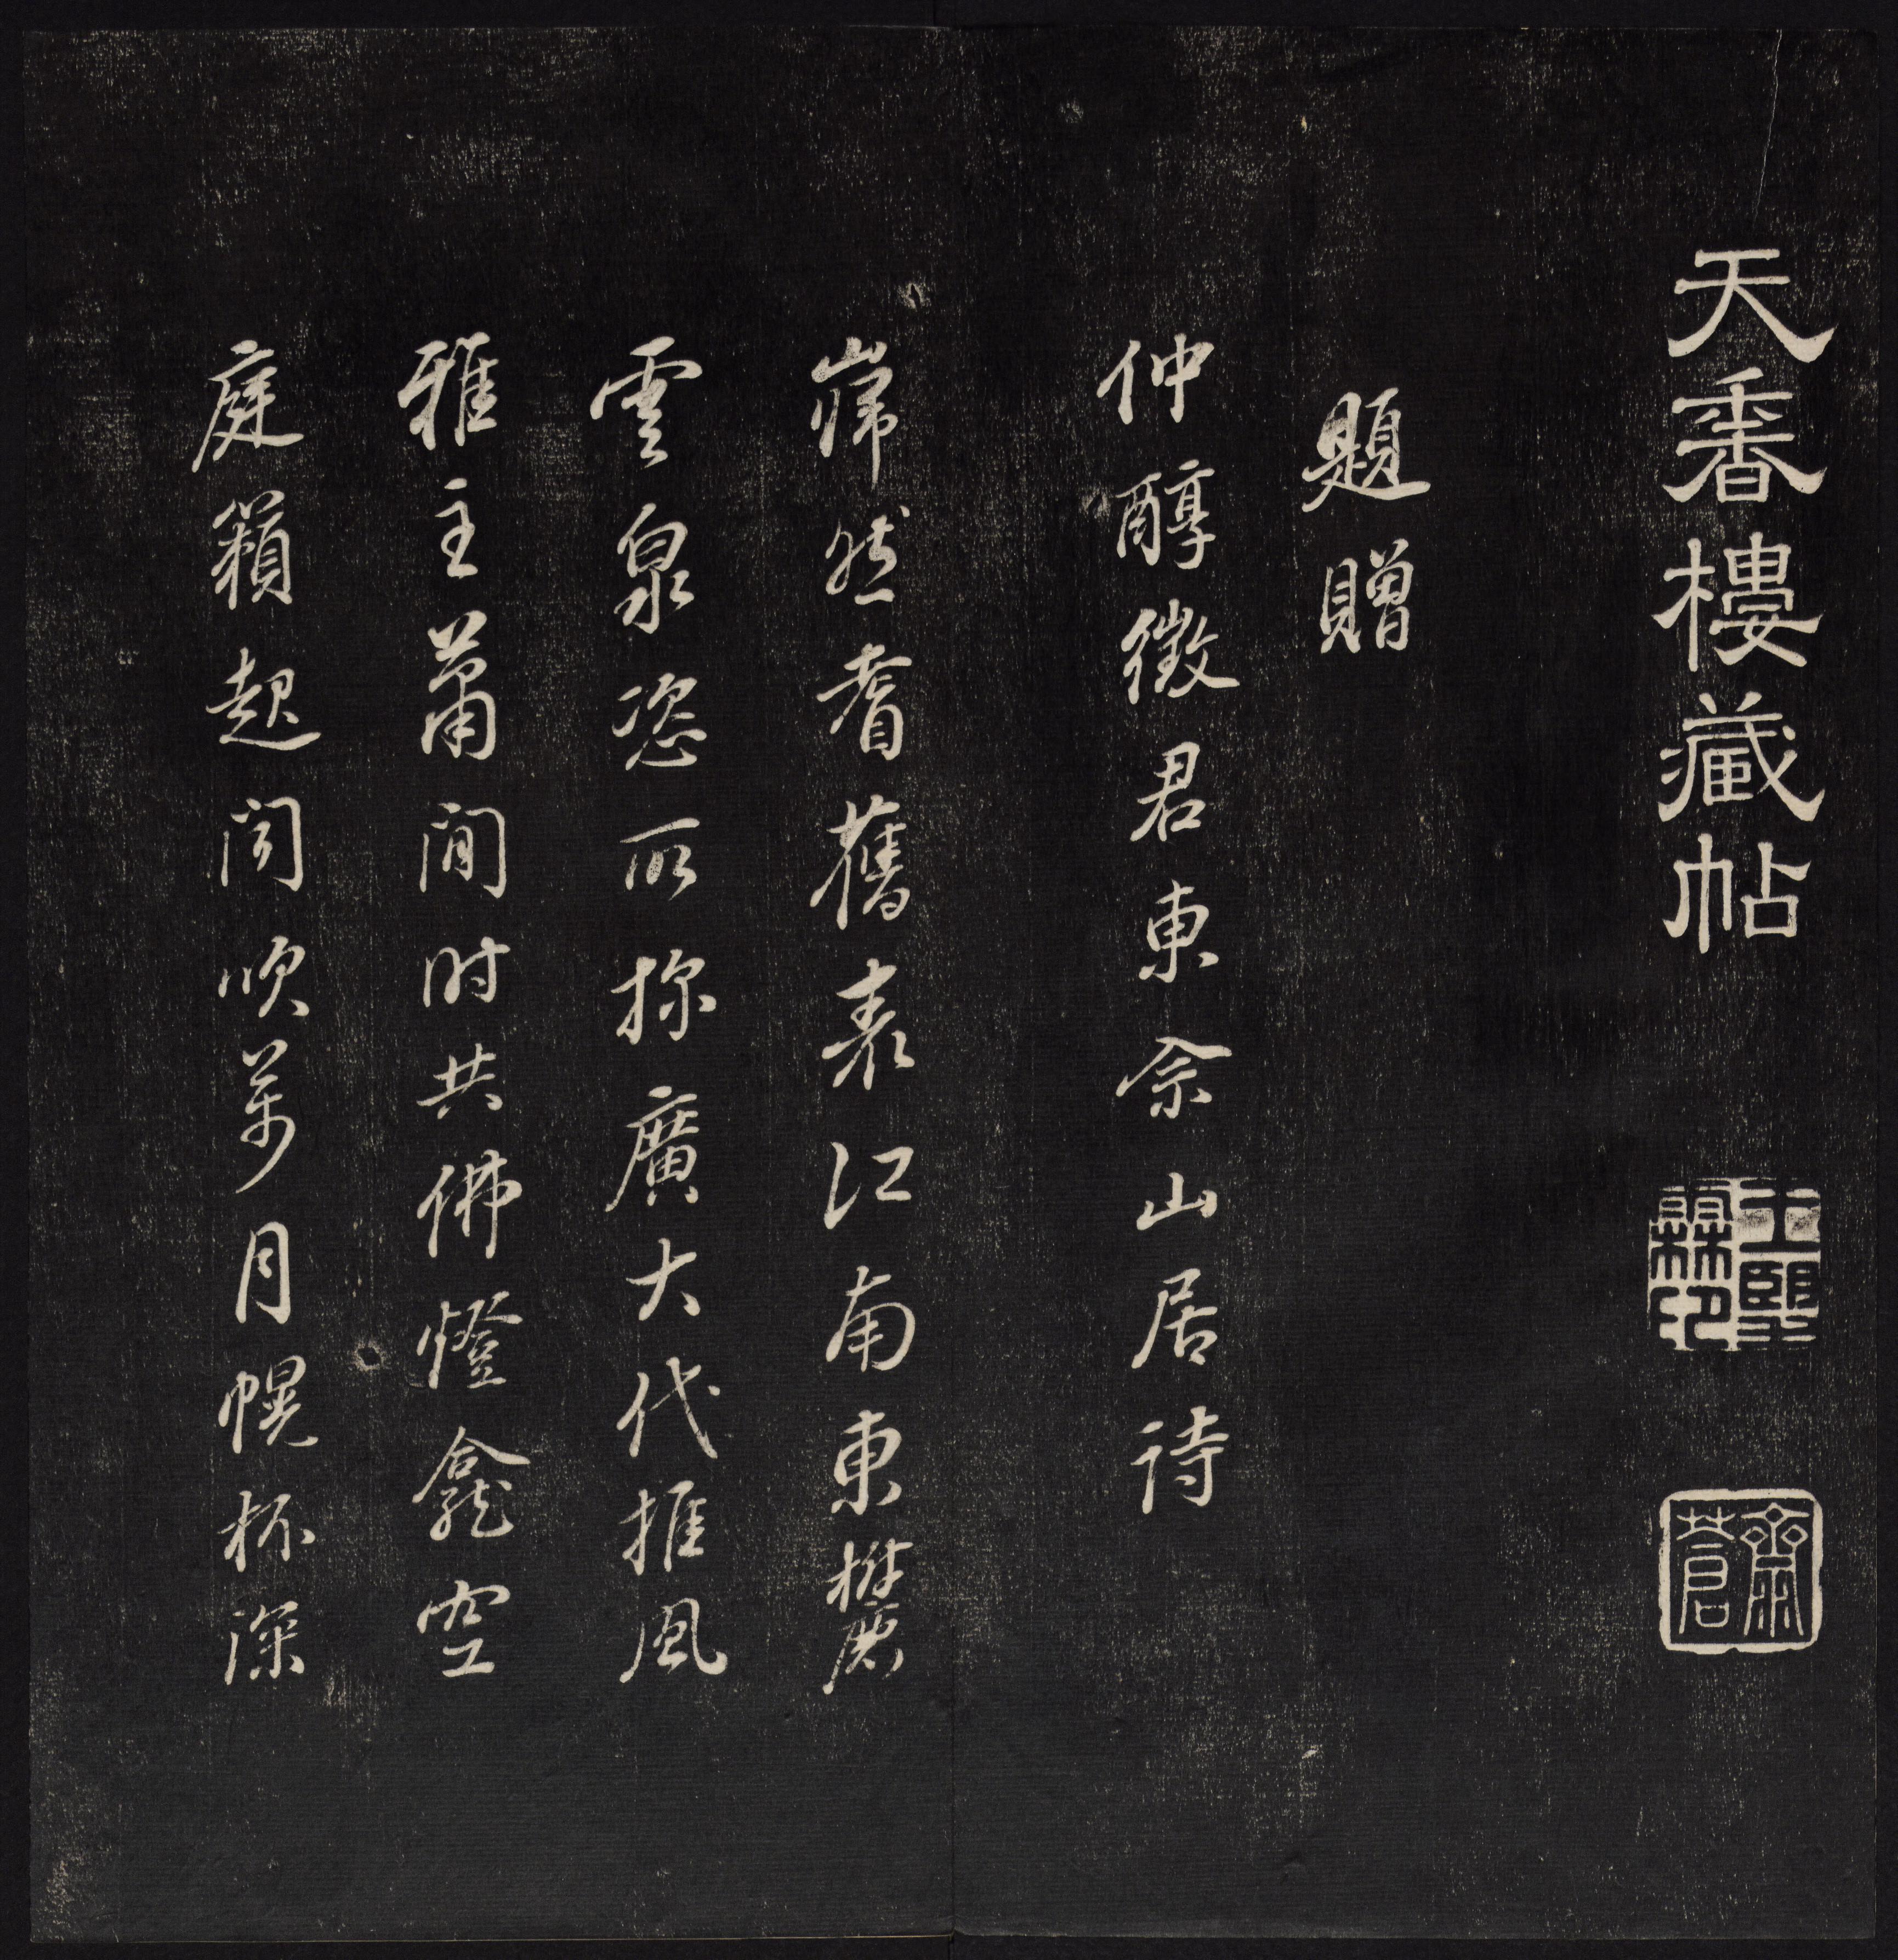 天香樓藏帖
王望霖印
題贈
仲醇徵君東佘山居詩
巋然耆舊表江南東
雲泉恣所探廣大代推風
雅主蕭閒時共佛燈龕空
庭籟起聞吹萬月幌杯深